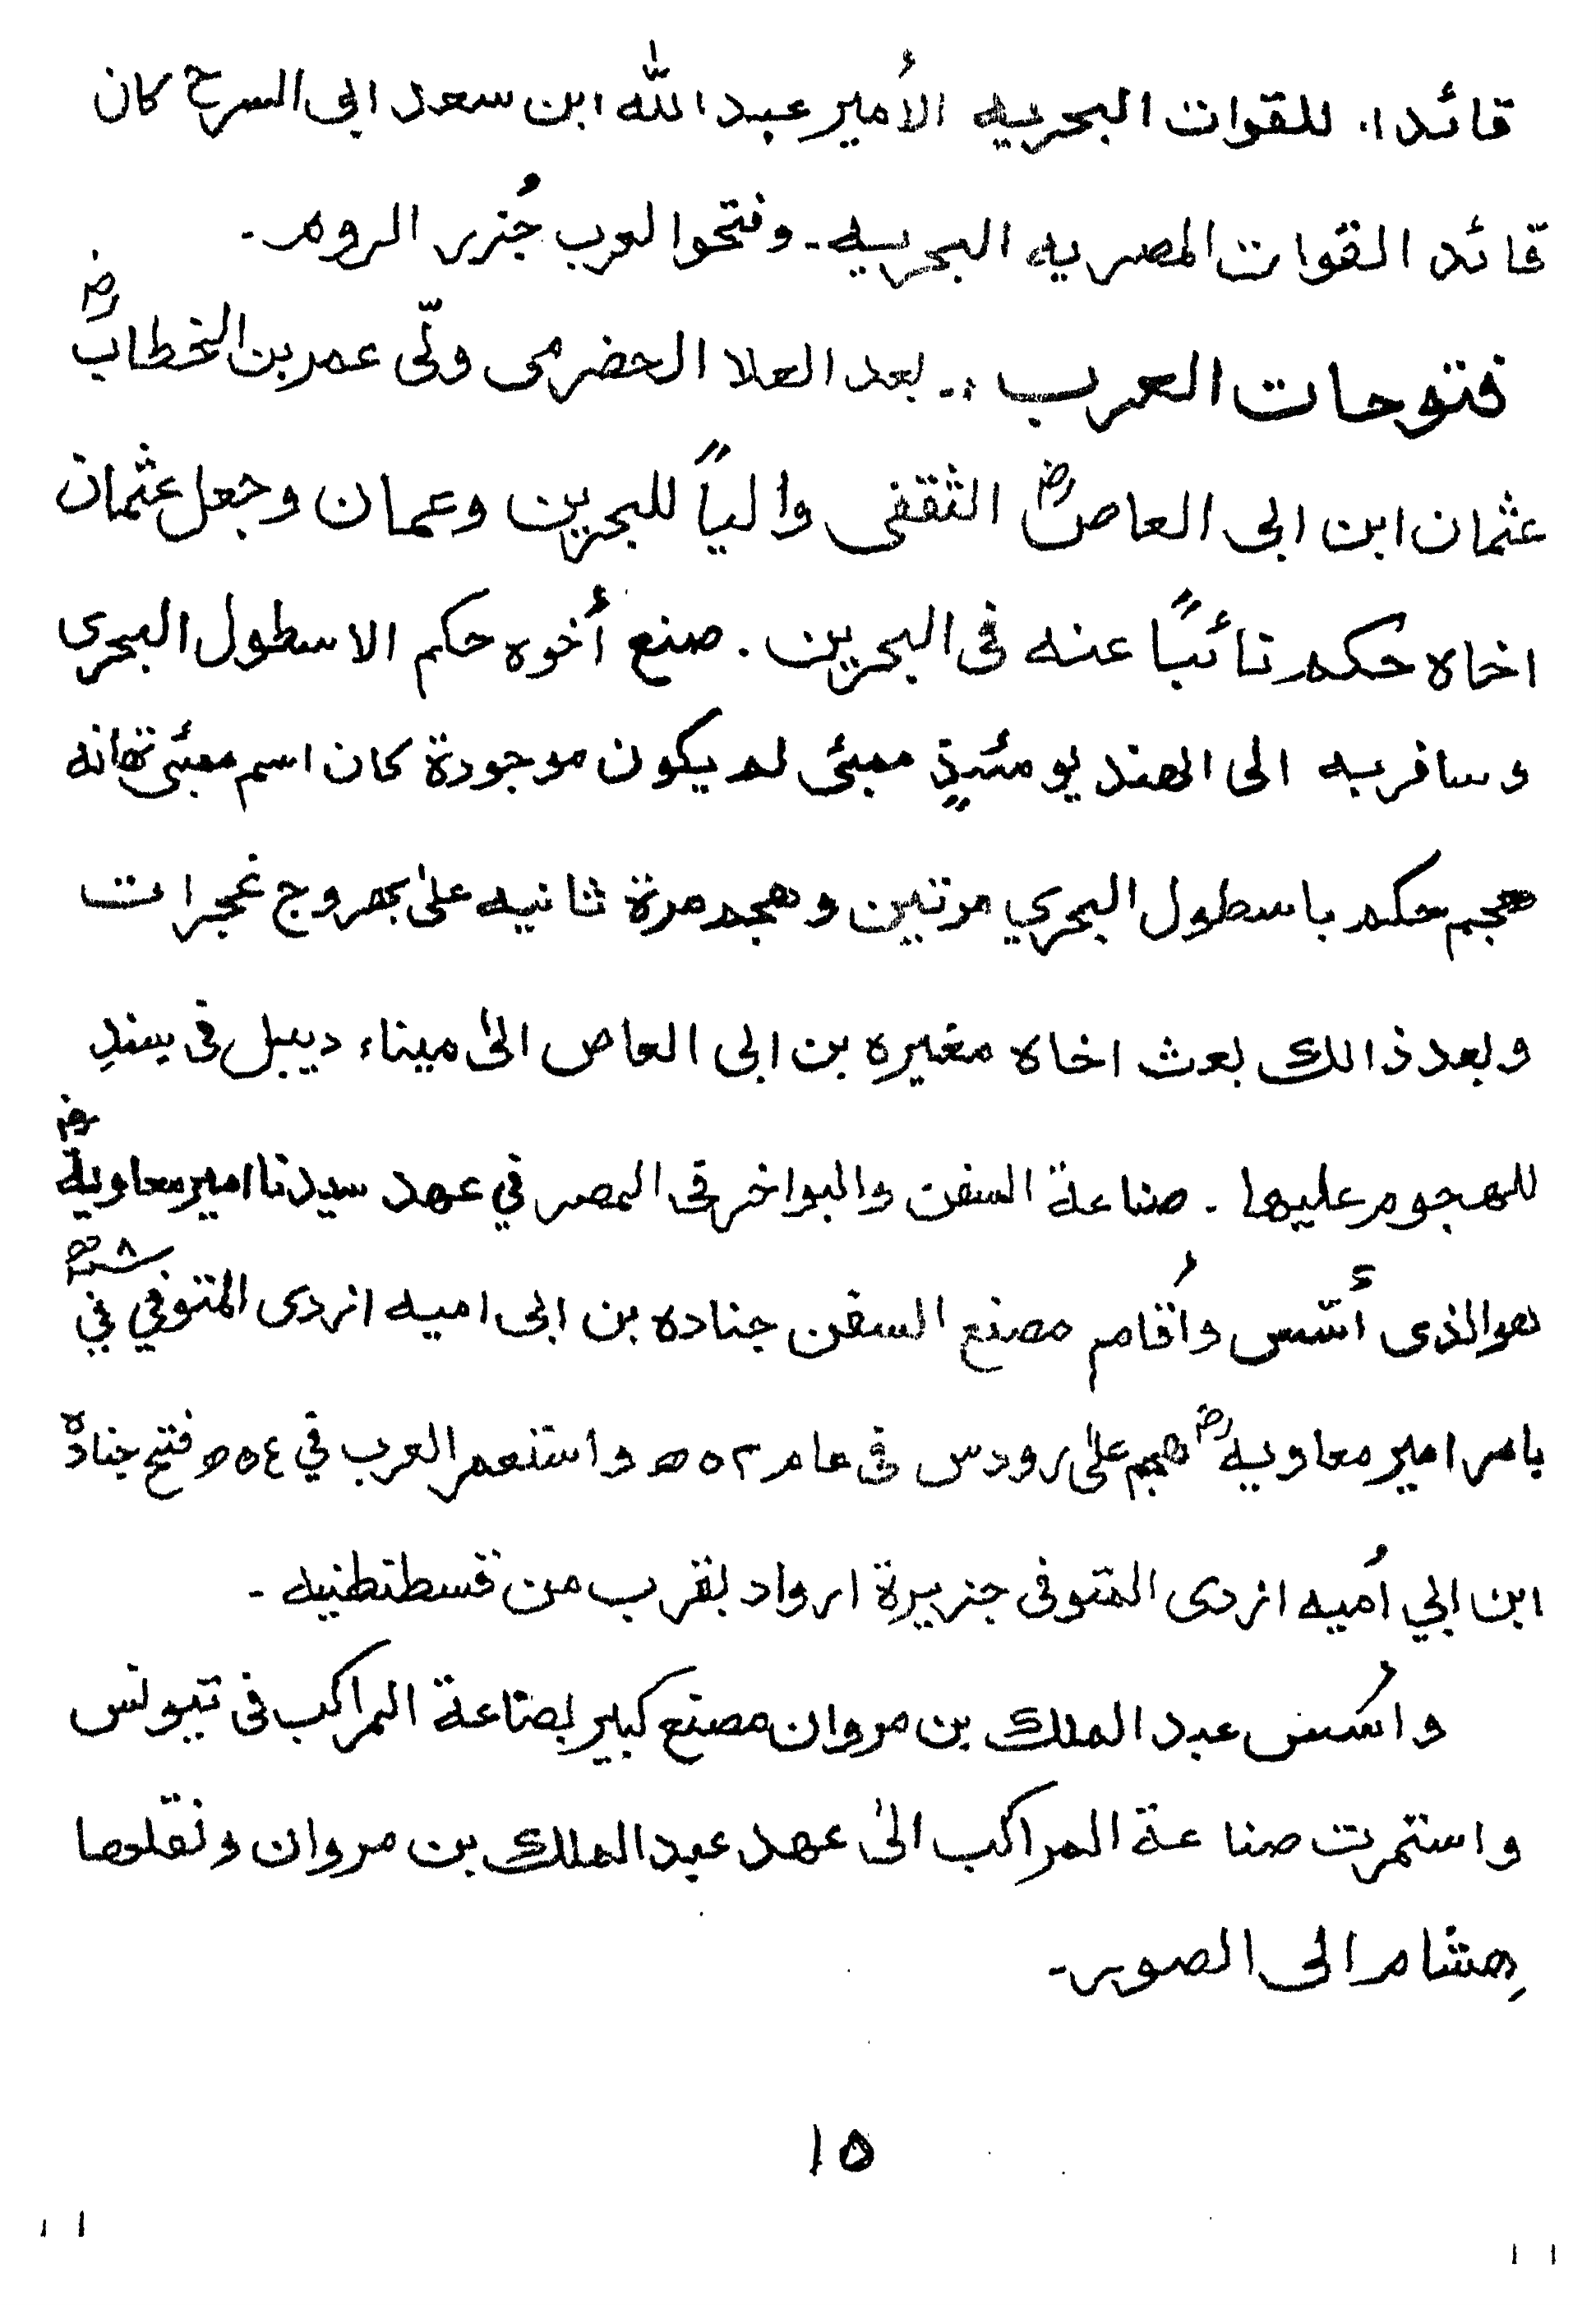 قائدا، للقوات البحريه الأمير عبد الله ابن سعد ابى السرح كان
قائد القوات المصريه البحريه۔ وفتحوا لعرب جُزر الروم۔
فتوحات العرب :۔ بعد العلا الحضرمى ولّى عمر بن الخطابؓ
عثمان ابن ابى العاصؓ الثقفى والياً للبحرين وعمان وجعل عثمان
اخاه حكم نائباً عنه فى البحرين . صنع أخوه حكم الاسطول البحرى
وسافر به الى الهند يومئذٍ ممبئى لم يكون موجودة كان اسم ممبئى تهانه
هجم حكم باسطول البحري مرتين وهجم مرة ثانيه علىٰ بهروج غجرات
وبعد ذالك بعث اخاه مغيره بن ابى العاص الىٰ ميناء ديبل فى سندِ
للهجوم عليها . صناعة السفن والبواخر فى المصر في عهد سيدنا امير معاويةؓ
هو الذى أسّس وأقام مصنع السفن جناده بن ابى اميه ازدى المتوفي في
بامر امير معاويهؓ هجم علىٰ رودس فى عام ٥٢ ھ واستعمر العرب في ٥٤ ھ فتح جناده
ابن ابي أميه ازدى المتوفى جزيرة ارواد بقرب من قسطنطنيه ۔
واسس عبد الملك بن مروان مصنع كبير لصناعة المراكب فى تيونس
واستمرت صناعة المراكب الىٰ عهد عبد الملك بن مروان ونقلها
هِشام الى الصوير۔
١٥